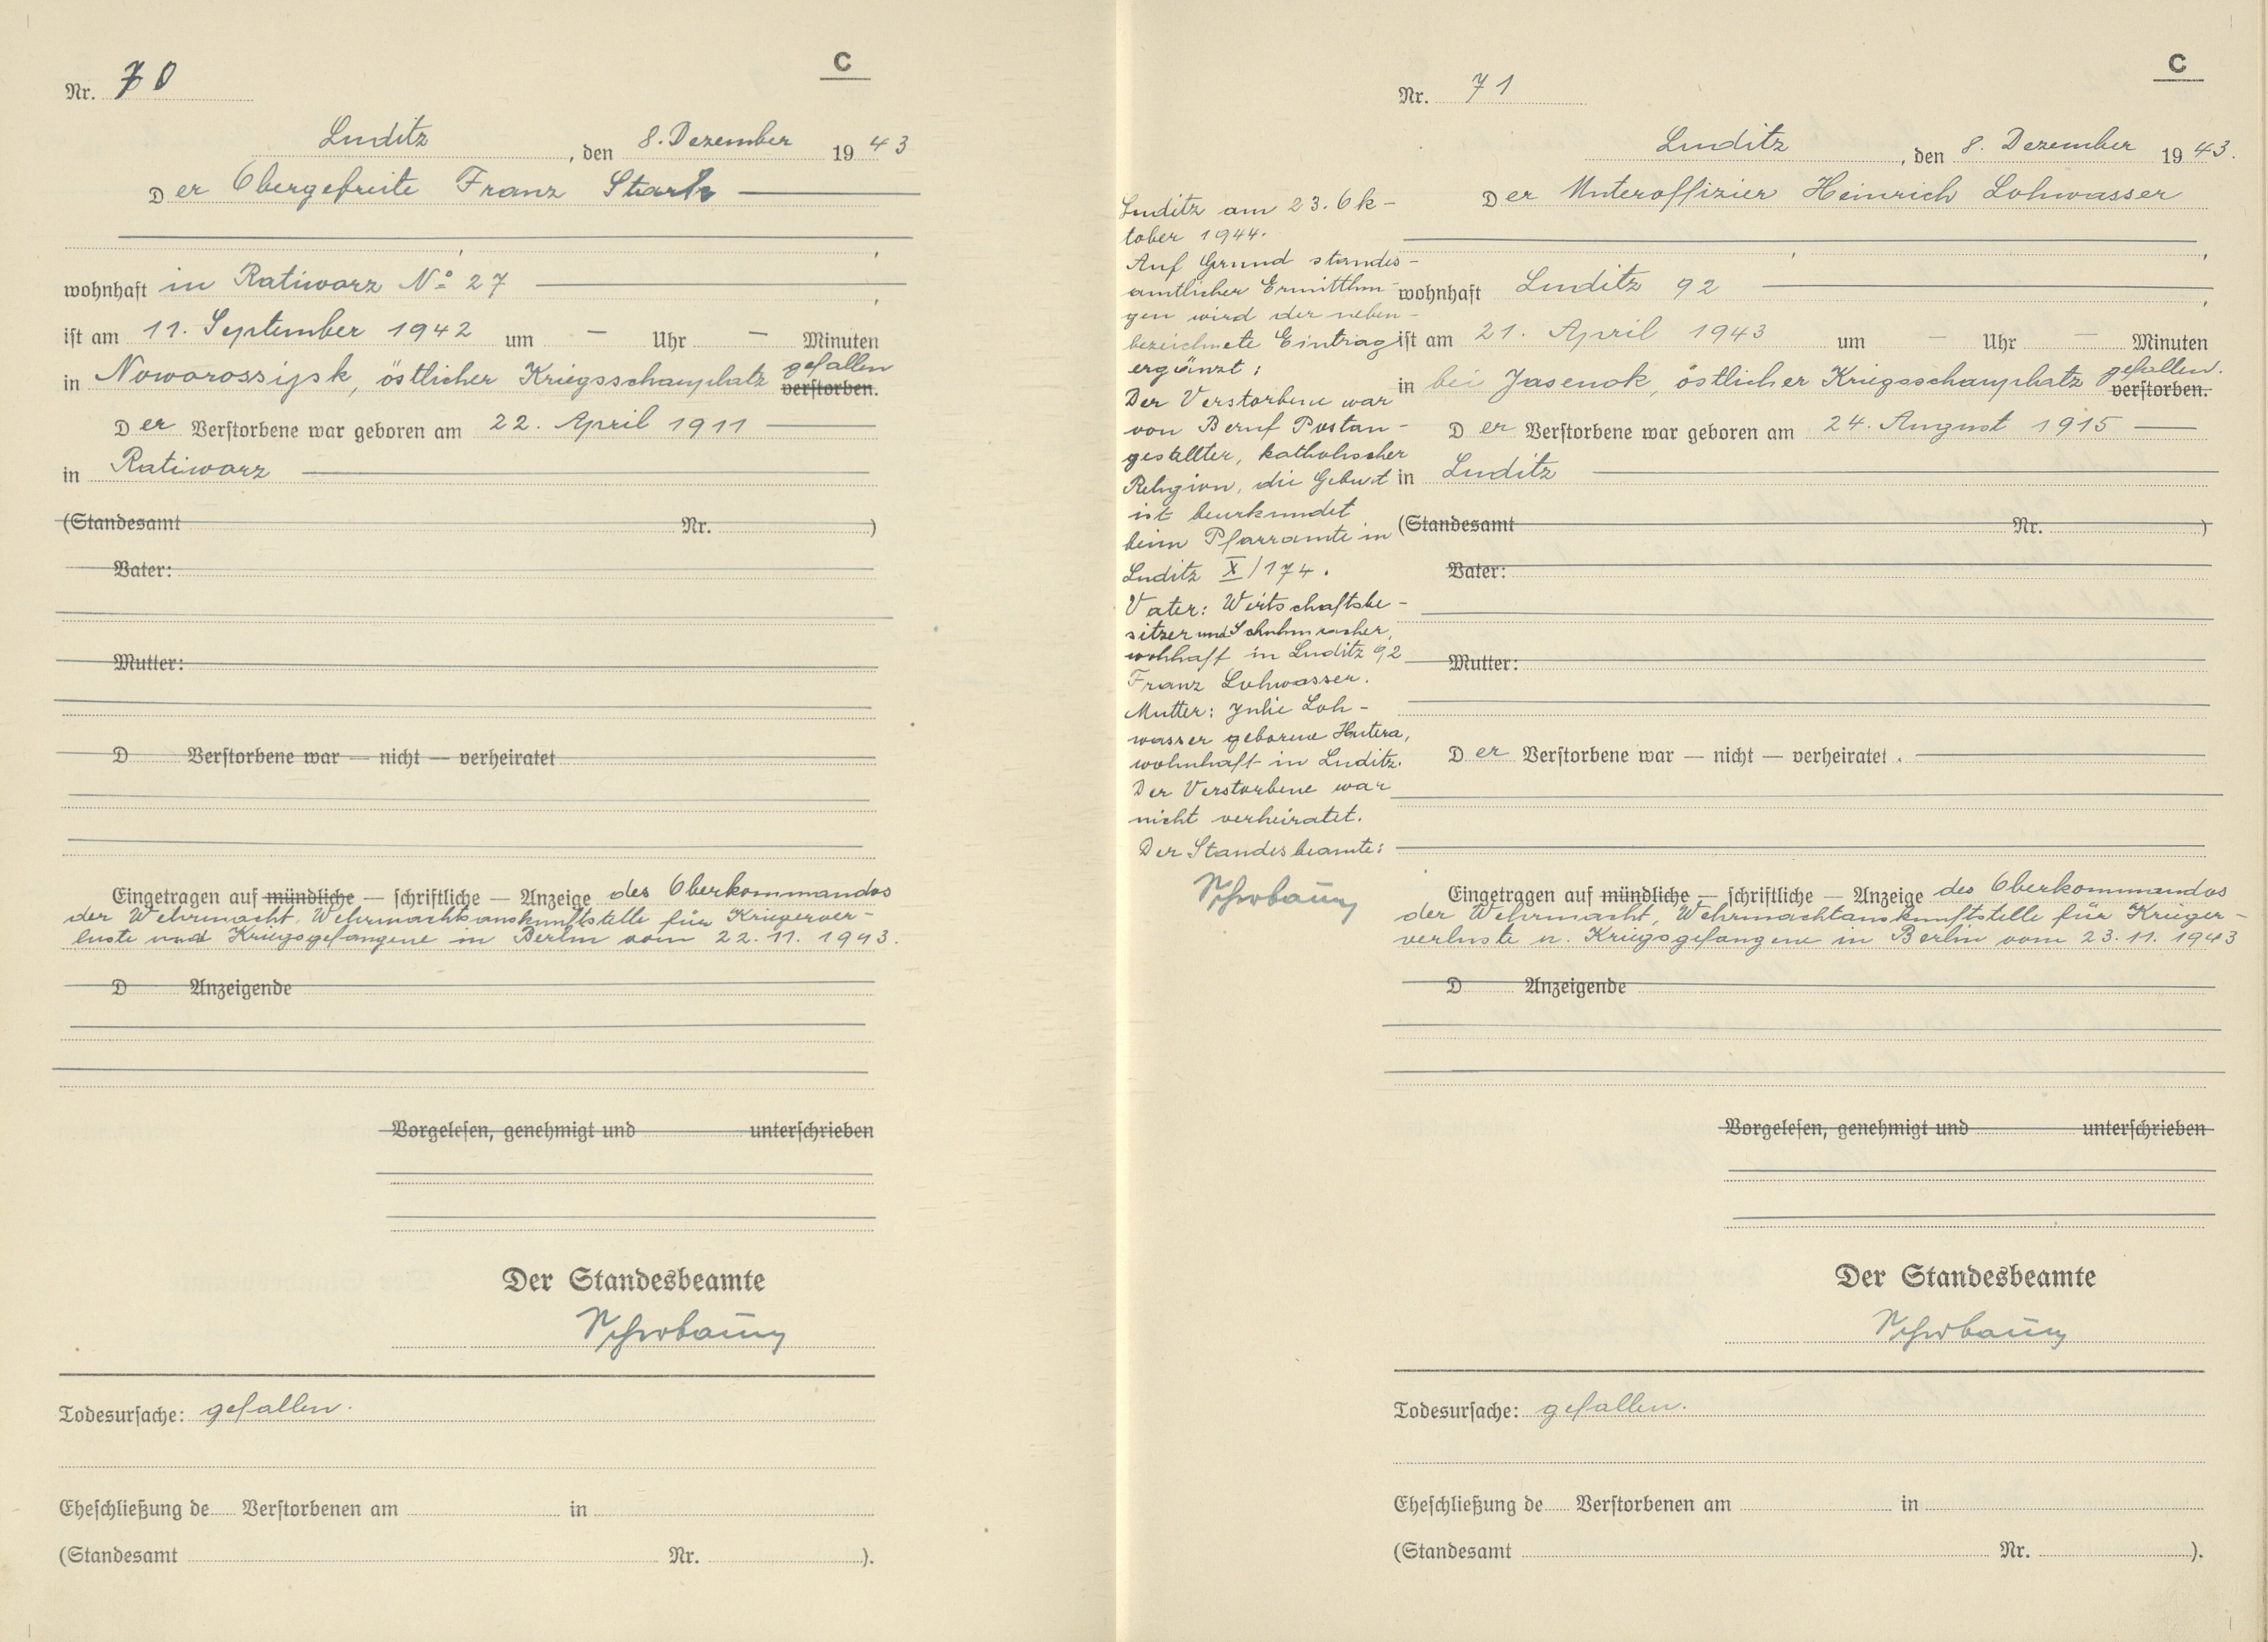 C
Nr. 70
Luditz, den 8. Dezember 1943
Der Obergefreite Franz Stark
wohnhaft in Ratiworz No 27
ist am 11. September 1942 um - Uhr - Minuten
gefallen
in Noworossijsk, östlicher Kriegsschauplatz verstorben.
Der Verstorbene war geboren am 22. April 1911
in Ratiworz
(Standesamt Nr. )
Vater:
Mutter:
D Verstorbene war — nicht — verheiratet
Eingetragen auf mündliche — schriftliche — Anzeige des Oberkommandos
der Wehrmacht, Wehrmachtsauskunftstelle für Kriegerver-
luste und Kriegsgefangene in Berlin vom 22. 11. 1943.
D Anzeigende
Vorgelesen, genehmigt und unterschrieben
Der Standesbeamte
Todesursache: gefallen.
Eheschließung de Verstorbenen am in
(Standesamt Nr. ).
C
Nr. 71
Luditz, den 8. Dezember 1943.
Der Unteroffizier Heinrich Lohwasser
wohnhaft Luditz 92
ist am 21. April 1943 um - Uhr - Minuten
gefallen.
in bei Jasenok, östlicher Kriegsschauplatz verstorben.
Der Verstorbene war geboren am 24. August 1915
in Luditz
(Standesamt Nr. )
Vater:
Mutter:
Der Verstorbene war — nicht — verheiratet.
Eingetragen auf mündliche — schriftliche — Anzeige des Oberkommandos
der Wehrmacht, Wehrmachtauskunftstelle für Krieger-
verluste u. Kriegsgefangene in Berlin vom 23. 11. 1943
D Anzeigende
Vorgelesen, genehmigt und unterschrieben
Der Standesbeamte
Todesursache: gefallen.
Eheschließung de Verstorbenen am in
(Standesamt Nr. ).
Luditz am 23. Ok-
tober 1944.
Auf Grund standes-
amtlicher Ermittlun-
gen wird der neben-
bezeichnete Eintrag
ergänzt:
Der Verstorbene war
von Beruf Postan-
gestellter, katholischer
Religion, die Geburt
ist beurkundet
beim Pfarramte in
Luditz X/174.
Vater: Wirtschaftsbe-
sitzer und Schuhmacher,
wohhaft in Luditz 92
Franz Lohwasser.
Mutter: Julie Loh-
wasser geborene Hutera,
wohnhaft in Luditz.
Der Verstorbene war
nicht verheiratet.
Der Standesbeamte: